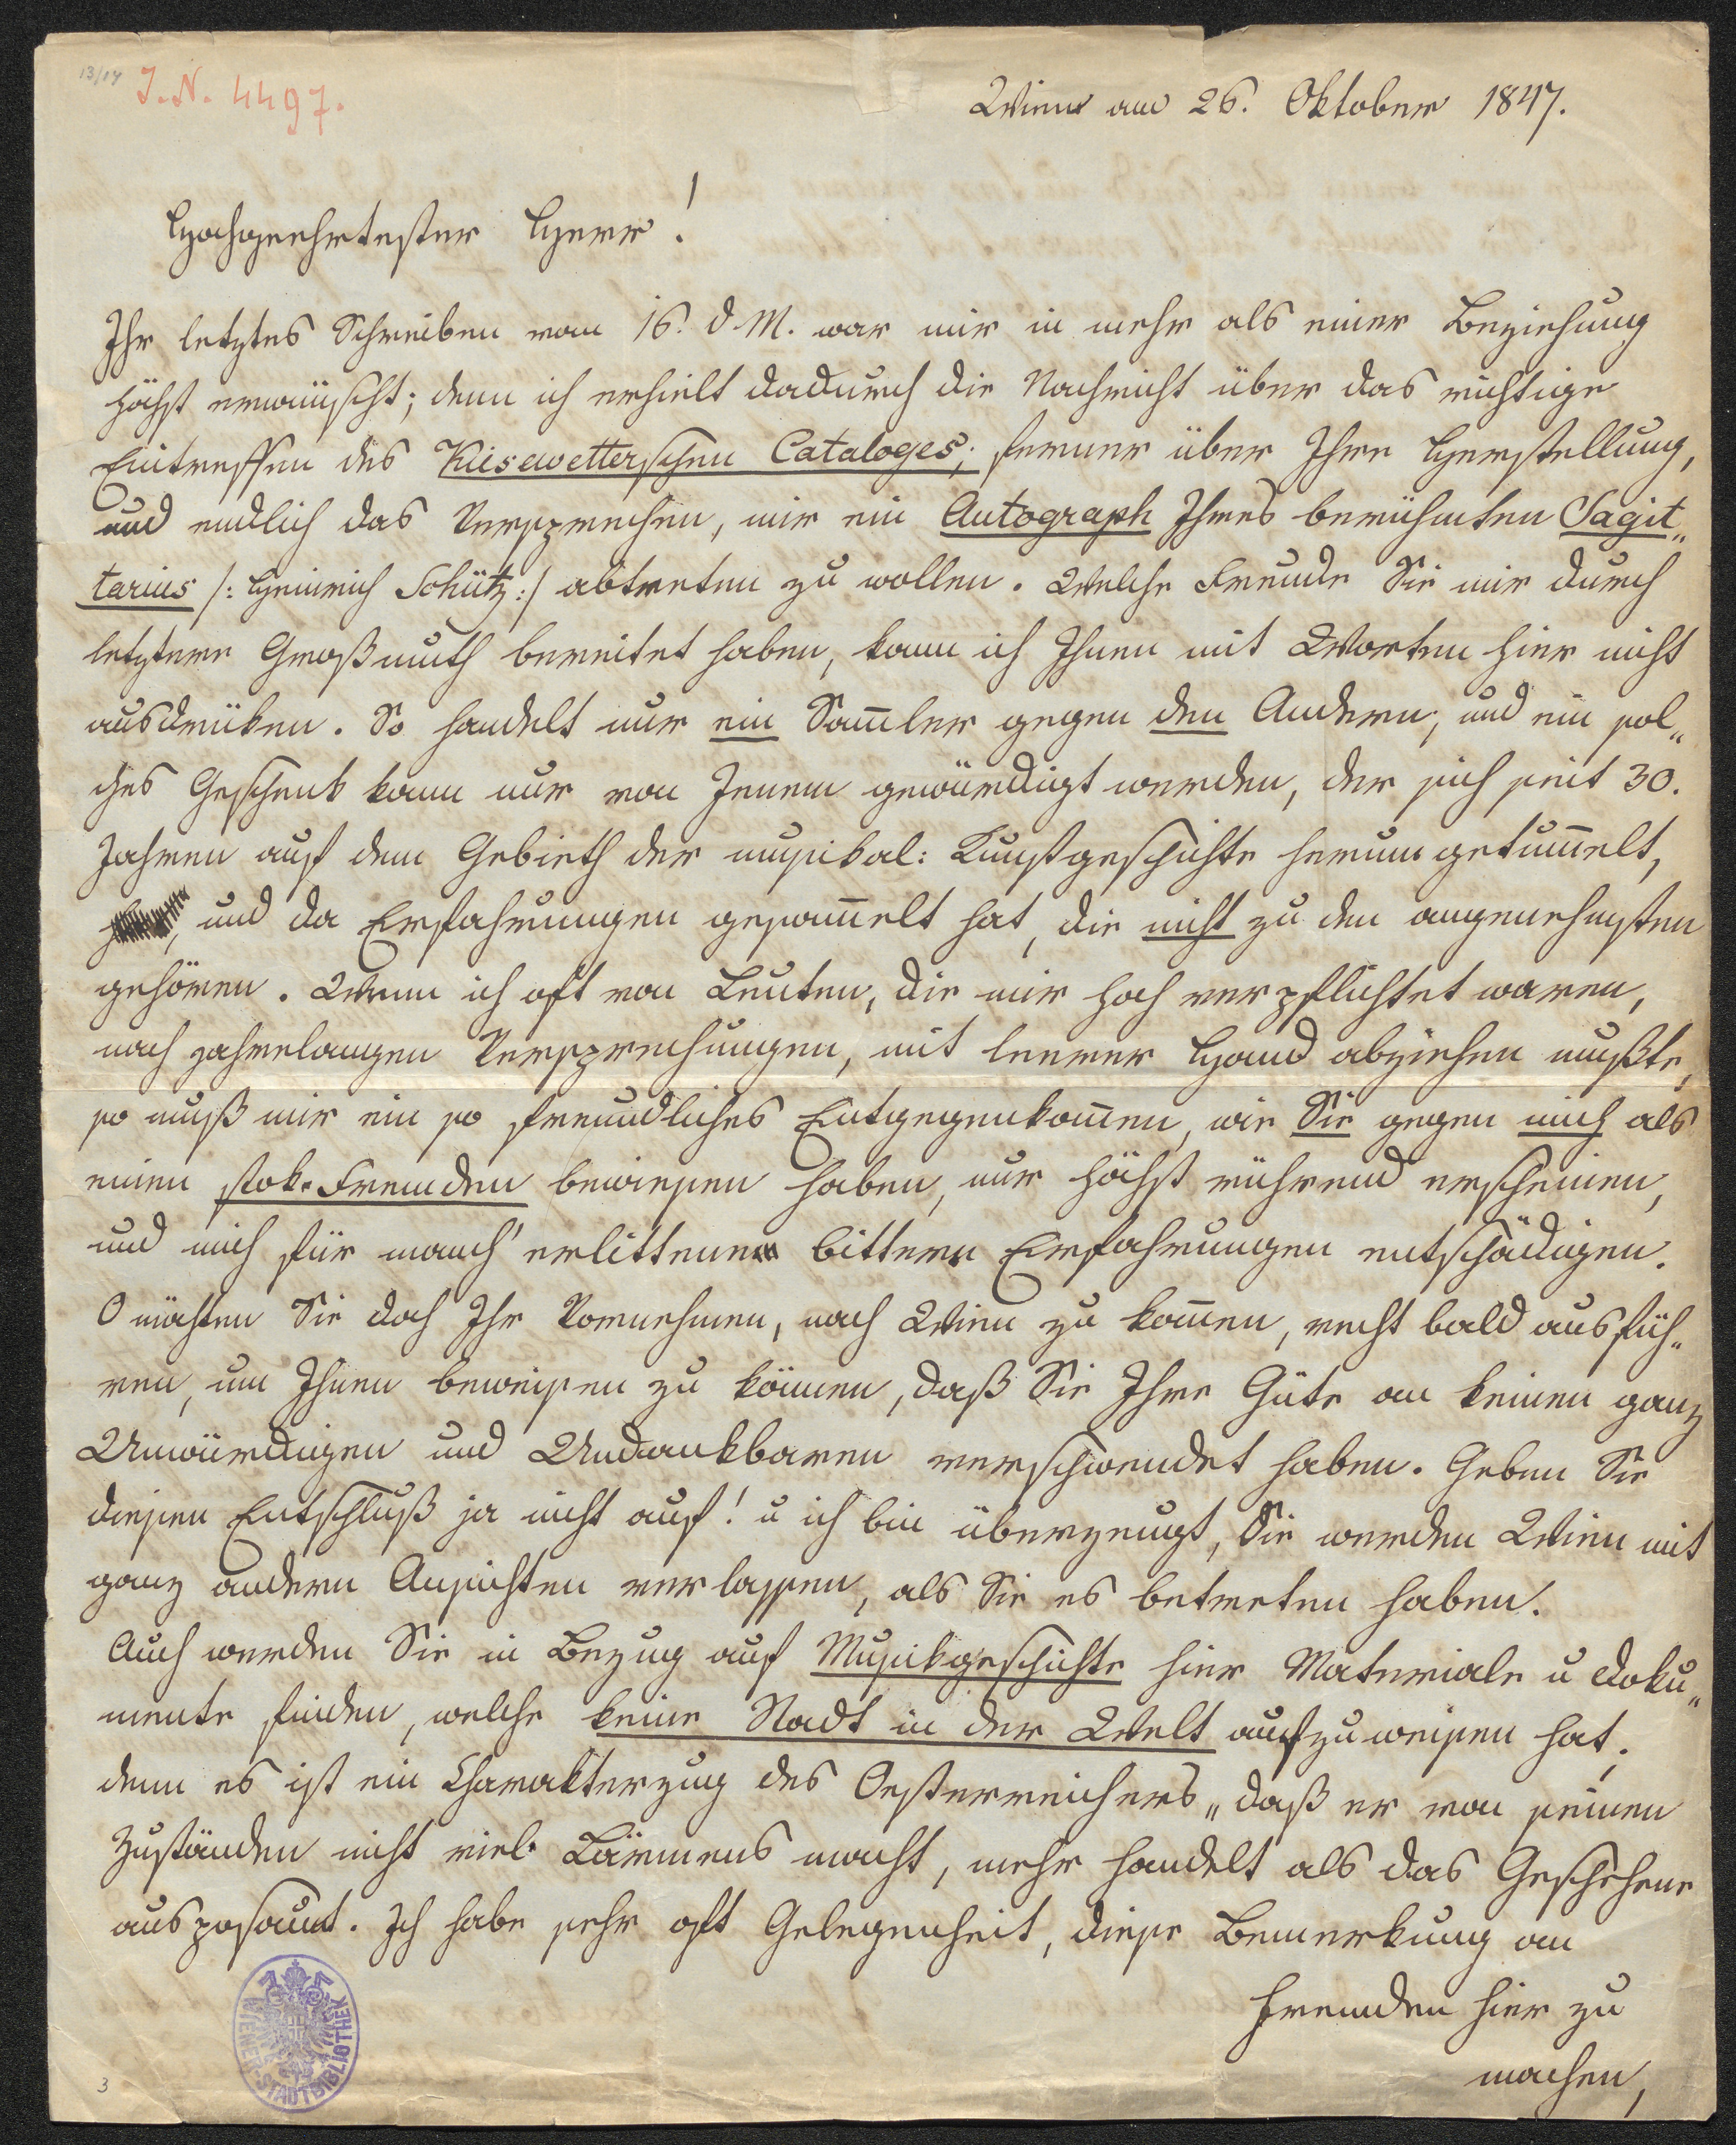 13/14
I.N. 4497.
Wien am 26. Oktober 1847.
Hochgeehrtester Herr!
Ihr letztes Schreiben vom 16. d. M. war mir in mehr als einer Beziehung
höchst erwünscht; denn ich erhielt dadurch die Nachricht über das richtige
Eintreffen des Kiesewetterschen Cataloges; ferner über Ihre Herstellung,
und endlich das Versprechen, mir ein Autograph Ihres berühmten Sagit„
tarius /: Heinrich Schütz :/ abtreten zu wollen. Welche Freude Sie mir durch
letztere Großmuth bereitet haben, kann ich Ihnen mit Worten hier nicht
ausdrüken. So handelt nur ein Sam̅ler gegen den Andern; und ein sol„
ches Geschenk kann nur von Jenem gewürdigt werden, der sich seit 30.
Jahren auf dem Gebieth der musikal: Kunstgeschichte herum getum̅elt,
und da Erfahrungen gesam̅elt hat, die nicht zu den angenehmsten
gehören. Wenn ich oft von Leuten, die mir hoch verpflichtet waren,
nach jahrelangen Versprechungen, mit leerer Hand abziehen mußte,
so muß mir ein so freundliches Entgegenkom̅en, wie Sie gegen mich als
einen stok-Fremden bewiesen haben, nur höchst rührend erscheinen,
und mich für manch' erlittene bittere Erfahrungen entschädigen.
O möchten Sie doch Ihr Vornehmen, nach Wien zu kom̅en, recht bald ausfüh„
ren, um Ihnen beweisen zu können, daß Sie Ihre Güte an keinen ganz
Unwürdigen und Undankbaren verschwendet haben. Geben Sie
diesen Entschluß ja nicht auf! u ich bin überzeugt, Sie werden Wien mit
ganz andern Ansichten verlassen, als Sie es betreten haben.
Auch werden Sie in Bezug auf Musikgeschichte hier Materiale u Doku„
mente finden, welche keine Stadt in der Welt aufzuweisen hat;
denn es ist ein Charakterzug des Oesterreichers „daß er von seinen
Zuständen nicht viel Lärmens macht, mehr handelt als das Geschehene
ausposaunt. Ich habe sehr oft Gelegenheit, diese Bemerkung an
Fremden hier zu
machen,
WIENER STADTBIBLIOTHEK
3